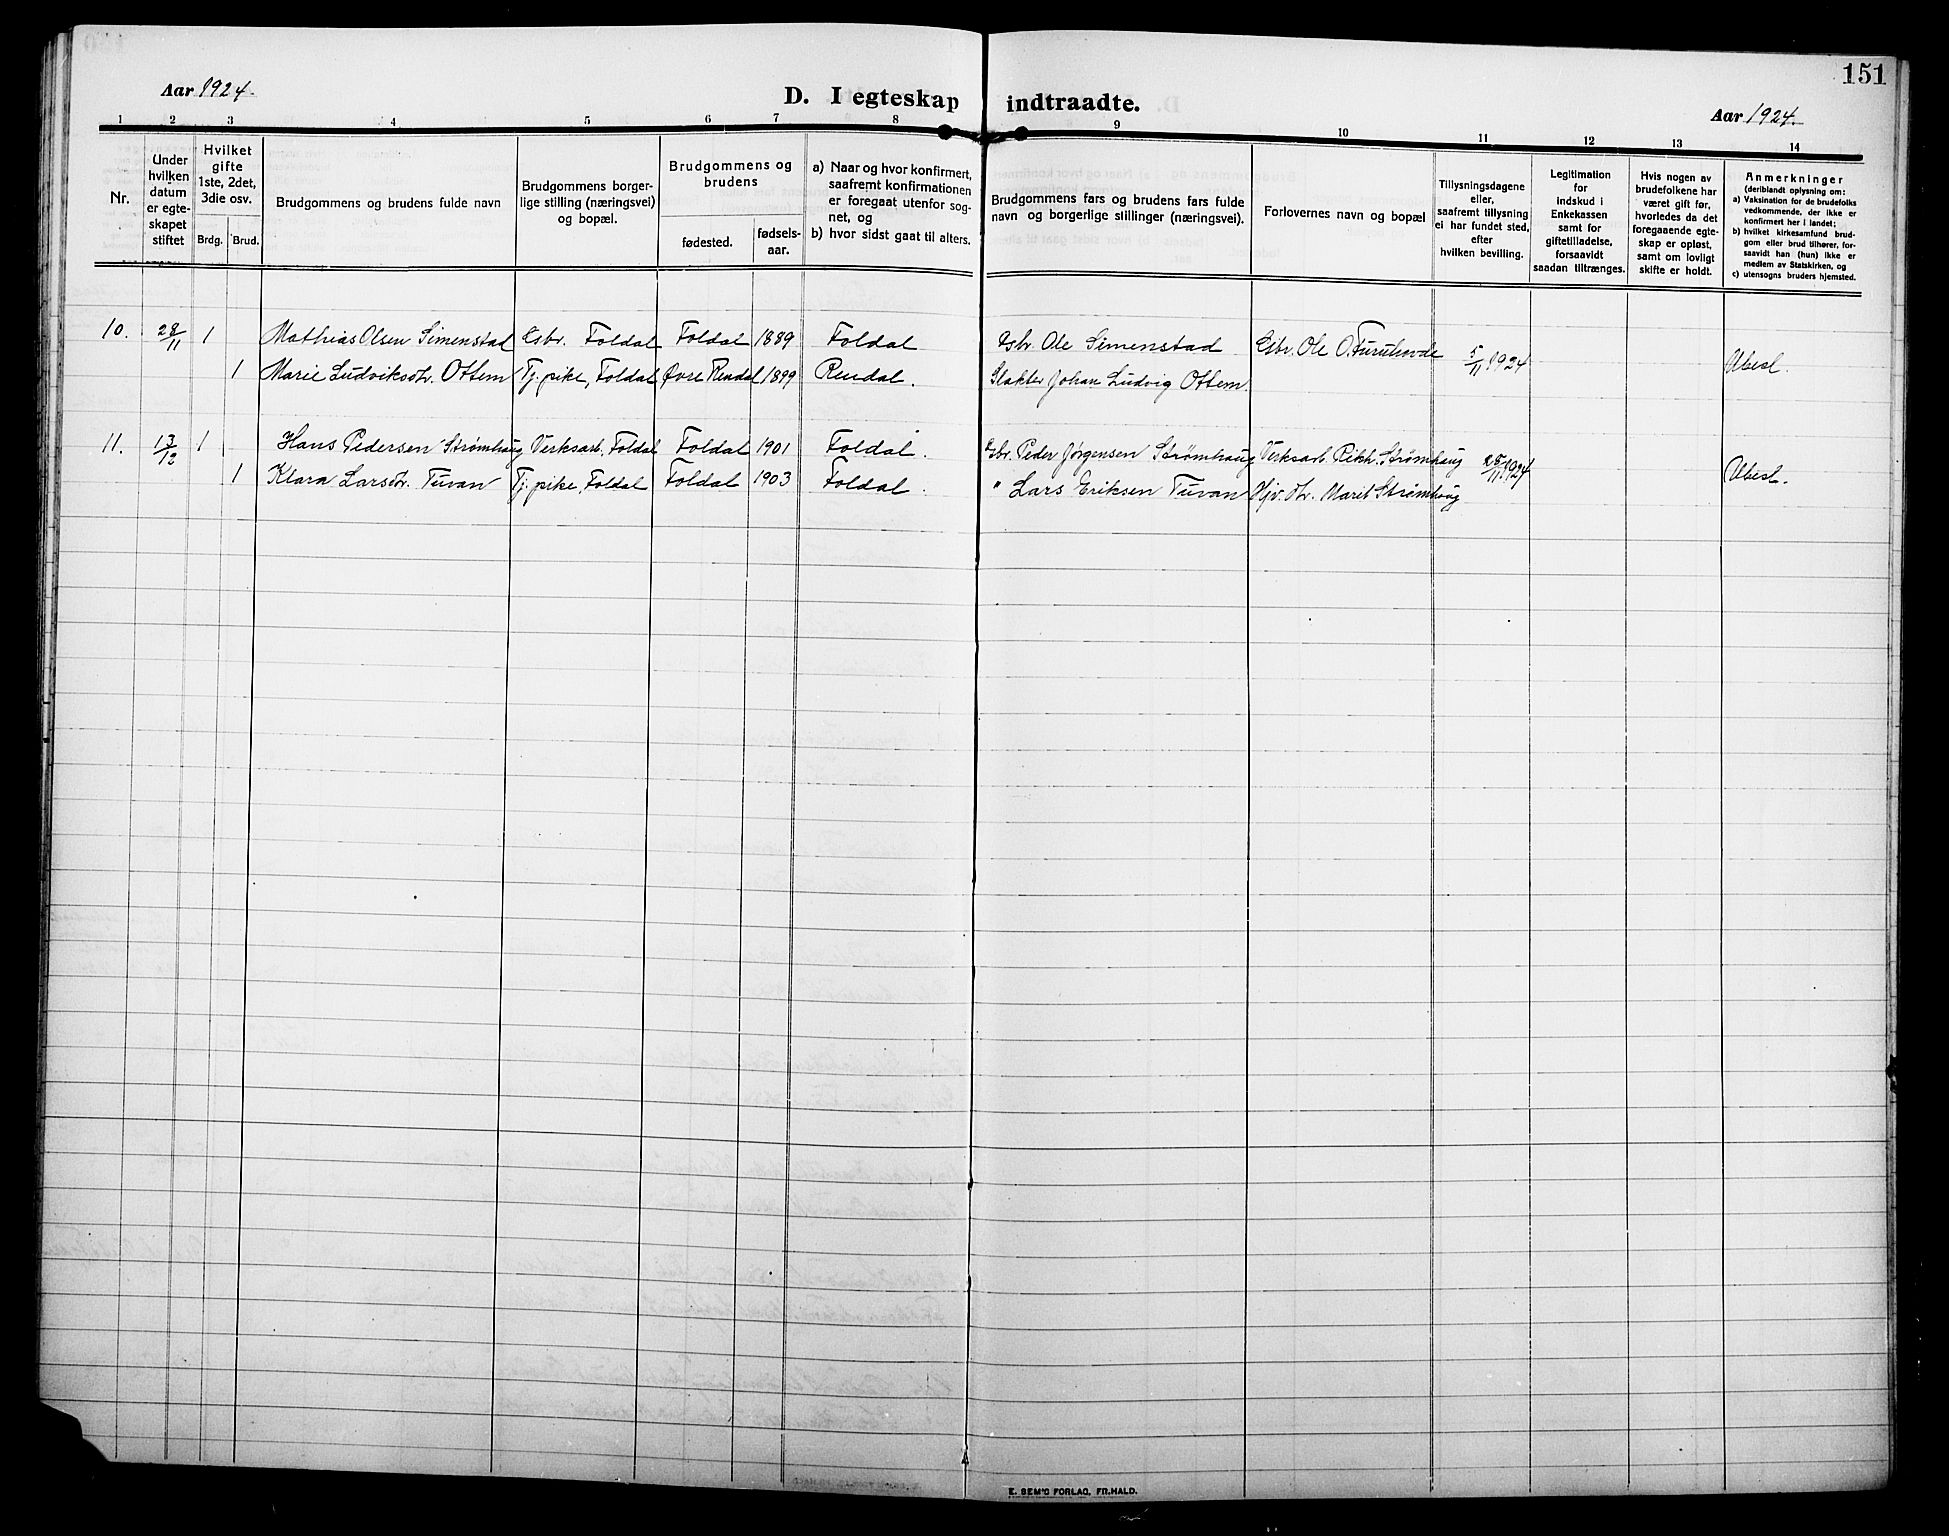 151
Aar 1924.
D. I egteskap indtraadte.
Aar 1924.
1 2 3 4 5 6 7 8 9 10 11 12 13 14
Nr.
Under hvilken datum er egteskapet stiftet
Hvilket gifte 1ste, 2det, 3die osv.
Brdg. Brud.
Brudgommens og brudens fulde navn
Brudgommens borgerlige stilling (næringsvei) og bopæl.
Brudgommens og brudens
fødested.
fødselsaar.
a) Naar og hvor konfirmert, saafremt konfirmationen er foregaat utenfor sognet, og
b) hvor sidst gaat til alters.
Brudgommens fars og brudens fars fulde navn og borgerlige stillinger (næringsvei).
Forlovernes navn og bopæl
Tillysningsdagene eller, saafremt tillysning ei har fundet sted, efter hvilken bevilling.
Legitimation for indskud i Enkekassen samt for giftetilladelse, forsaavidt saadan tiltrænges.
Hvis nogen av brudefolkene har været gift før, hvorledes da det foregaaende egteskap er opløst, samt om lovligt skifte er holdt.
Anmerkninger
(deriblandt oplysning om:
a) Vaksination for de brudefolks vedkommende, der ikke er konfirmert her i landet;
b) hvilket kirkesamfund brudgom eller brud tilhører, forsaavidt han (hun) ikke er medlem av Statskirken, og
c) utensogns bruders hjemsted.
10. 28/11 1 Mathias Olsen Simenstad Gsbr. Foldal Foldal 1889 Foldal Gsbr. Ole Simenstad Gsbr. Ole O. Furuhovde 5/11 1924 Ubesl.
1 Marie Ludviksdtr. Ottem Tj. pike, Foldal Øvre Rendal 1899 Rendal. Slakter Johan Ludvig Ottem.
11. 13/12 1 Hans Pedersen Strømhaug Verksarb. Foldal Foldal 1901 Foldal. Gsbr. Peder Jørgensen Strømhaug Verksarb. Rikh. Strømhaug 28/11 1924 Ubesl.
1 Klara Larsdtr. Tuvan Tj. pike, Foldal Foldal 1903 Foldal. " Lars Eriksen Tuvan Marit Strømhaug
E. SEM'S FORLAG, FR.HALD.